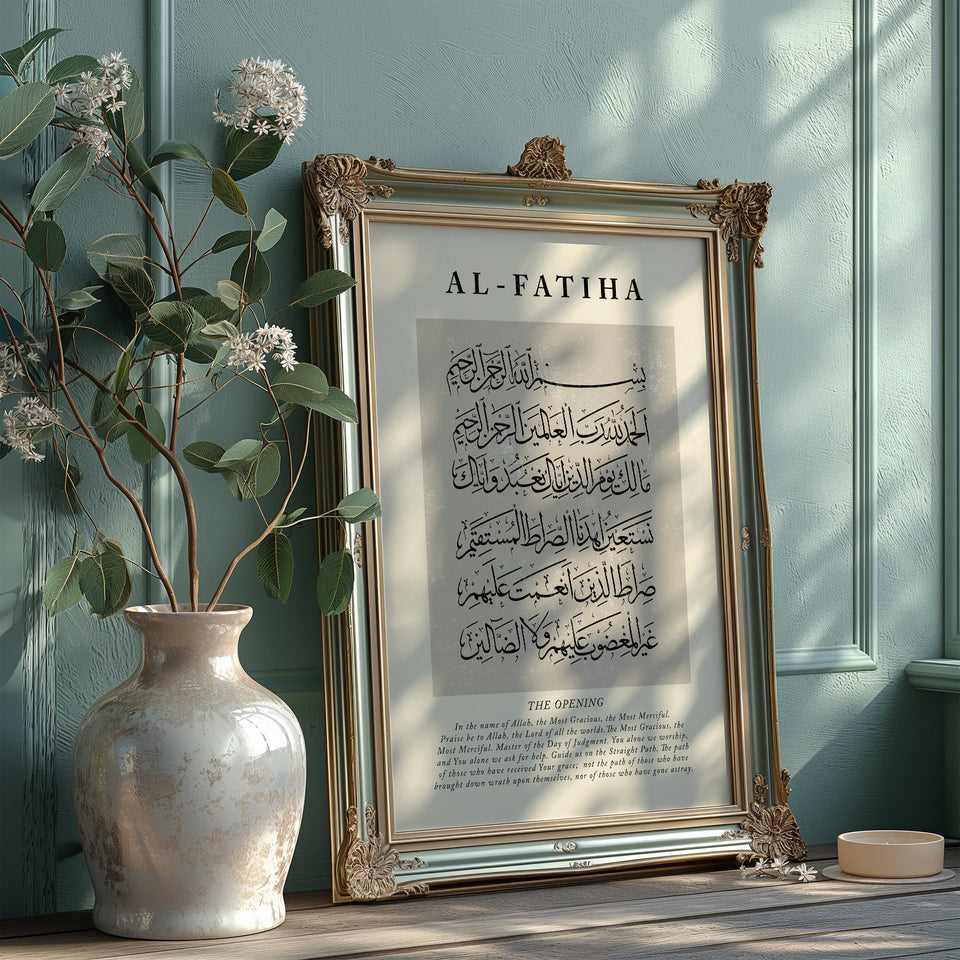 AL-FATIHA
بِسْمِ اللَّهِ الرَّحْمَنِ الرَّحِيمِ
الْحَمْدُ لِلَّهِ رَبِّ الْعَالَمِينَ الرَّحْمَنِ الرَّحِيمِ
مَالِكِ يَوْمِ الدِّينِ إِيَّاكَ نَعْبُدُ وَإِيَّاكَ
نَسْتَعِينُ اهْدِنَا الصِّرَاطَ الْمُسْتَقِيمَ
صِرَاطَ الَّذِينَ أَنْعَمْتَ عَلَيْهِمْ
غَيْرِ الْمَغْضُوبِ عَلَيْهِمْ وَلَا الضَّالِّينَ
THE OPENING
In the name of Allah, the Most Gracious, the Most Merciful.
Praise be to Allah, the Lord of all the worlds. The Most Gracious, the
Most Merciful. Master of the Day of Judgment. You alone we worship,
and You alone we ask for help. Guide us on the Straight Path. The path
of those who have received Your grace; not the path of those who have
brought down wrath upon themselves, nor of those who have gone astray.